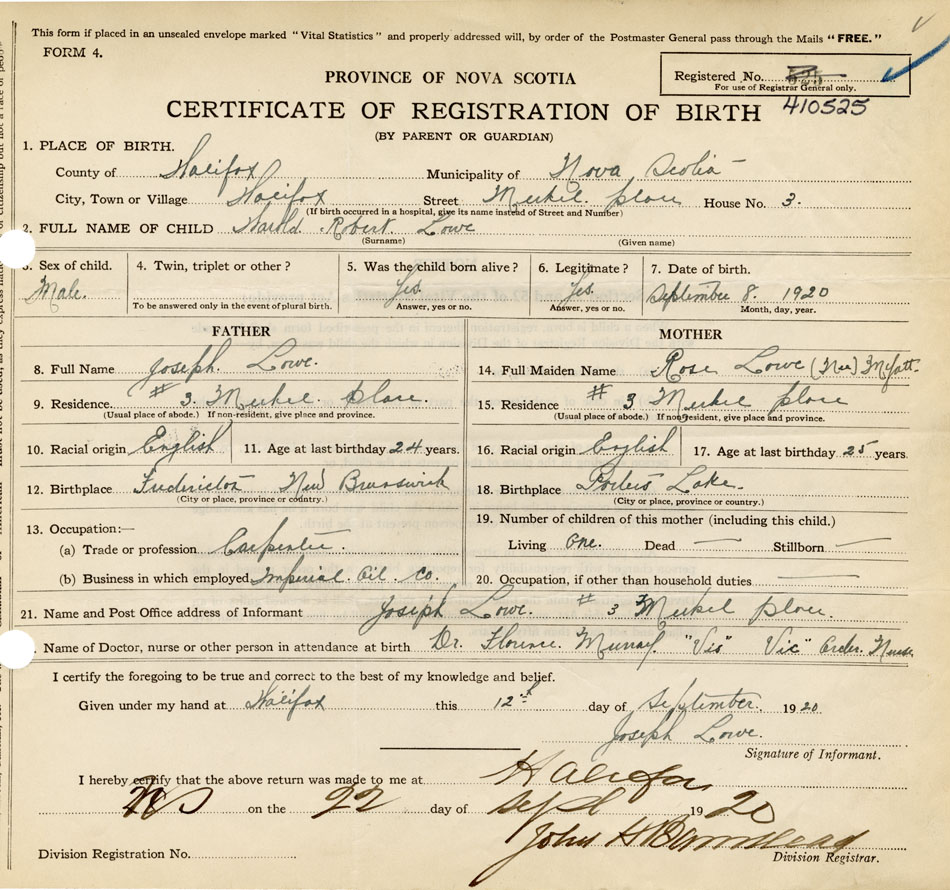 This form if placed in an unsealed envelope marked "Vital Statistics" and properly addressed will, by order of the Postmaster General pass through the Mails "FREE."
FORM 4.
Registered No.
For use of Registrar General only.
410525
PROVINCE OF NOVA SCOTIA
CERTIFICATE OF REGISTRATION OF BIRTH
(BY PARENT OR GUARDIAN)
1. PLACE OF BIRTH.
County of Halifax Municipality of Nova Scotia
City, Town or Village Halifax Street Merkel place House No. 3.
(If birth occurred in a hospital, give its name instead of Street and Number)
2. FULL NAME OF CHILD Harold Robert Lowe
(Surname) (Given name)
3. Sex of child. 4. Twin, triplet or other? 5. Was the child born alive? 6. Legitimate? 7. Date of birth.
Male. Yes. Yes. September 8. 1920
To be answered only in the event of plural birth. Answer, yes or no. Answer, yes or no. Month, day, year.
FATHER
8. Full Name Joseph Lowe.
9. Residence. # 3. Merkel place.
(Usual place of abode.) If non-resident, give place and province.
10. Racial origin English 11. Age at last birthday 24 years.
12. Birthplace Fredericton New Brunswick
(City or place, province or country.)
13. Occupation:—
(a) Trade or profession Carpenter.
(b) Business in which employed Imperial Oil Co.
MOTHER
14. Full Maiden Name Rose Lowe (Nee)
15. Residence # 3 Merkel place
(Usual place of abode.) If non-resident, give place and province.
16. Racial origin English 17. Age at last birthday 25 years.
18. Birthplace Porters Lake.
(City or place, province or country.)
19. Number of children of this mother (including this child.)
Living One. Dead — Stillborn —
20. Occupation, if other than household duties —
21. Name and Post Office address of Informant Joseph Lowe. # 3 Merkel place.
Name of Doctor, nurse or other person in attendance at birth Dr. Florence Murray. "Vis" Vic" Order. Nurse
I certify the foregoing to be true and correct to the best of my knowledge and belief.
Given under my hand at Halifax this 12th day of September. 1920
Joseph Lowe.
Signature of Informant.
I hereby certify that the above return was made to me at Halifax
on the 22 day of Sept 1920
John H Barnstead
Division Registration No. Division Registrar.